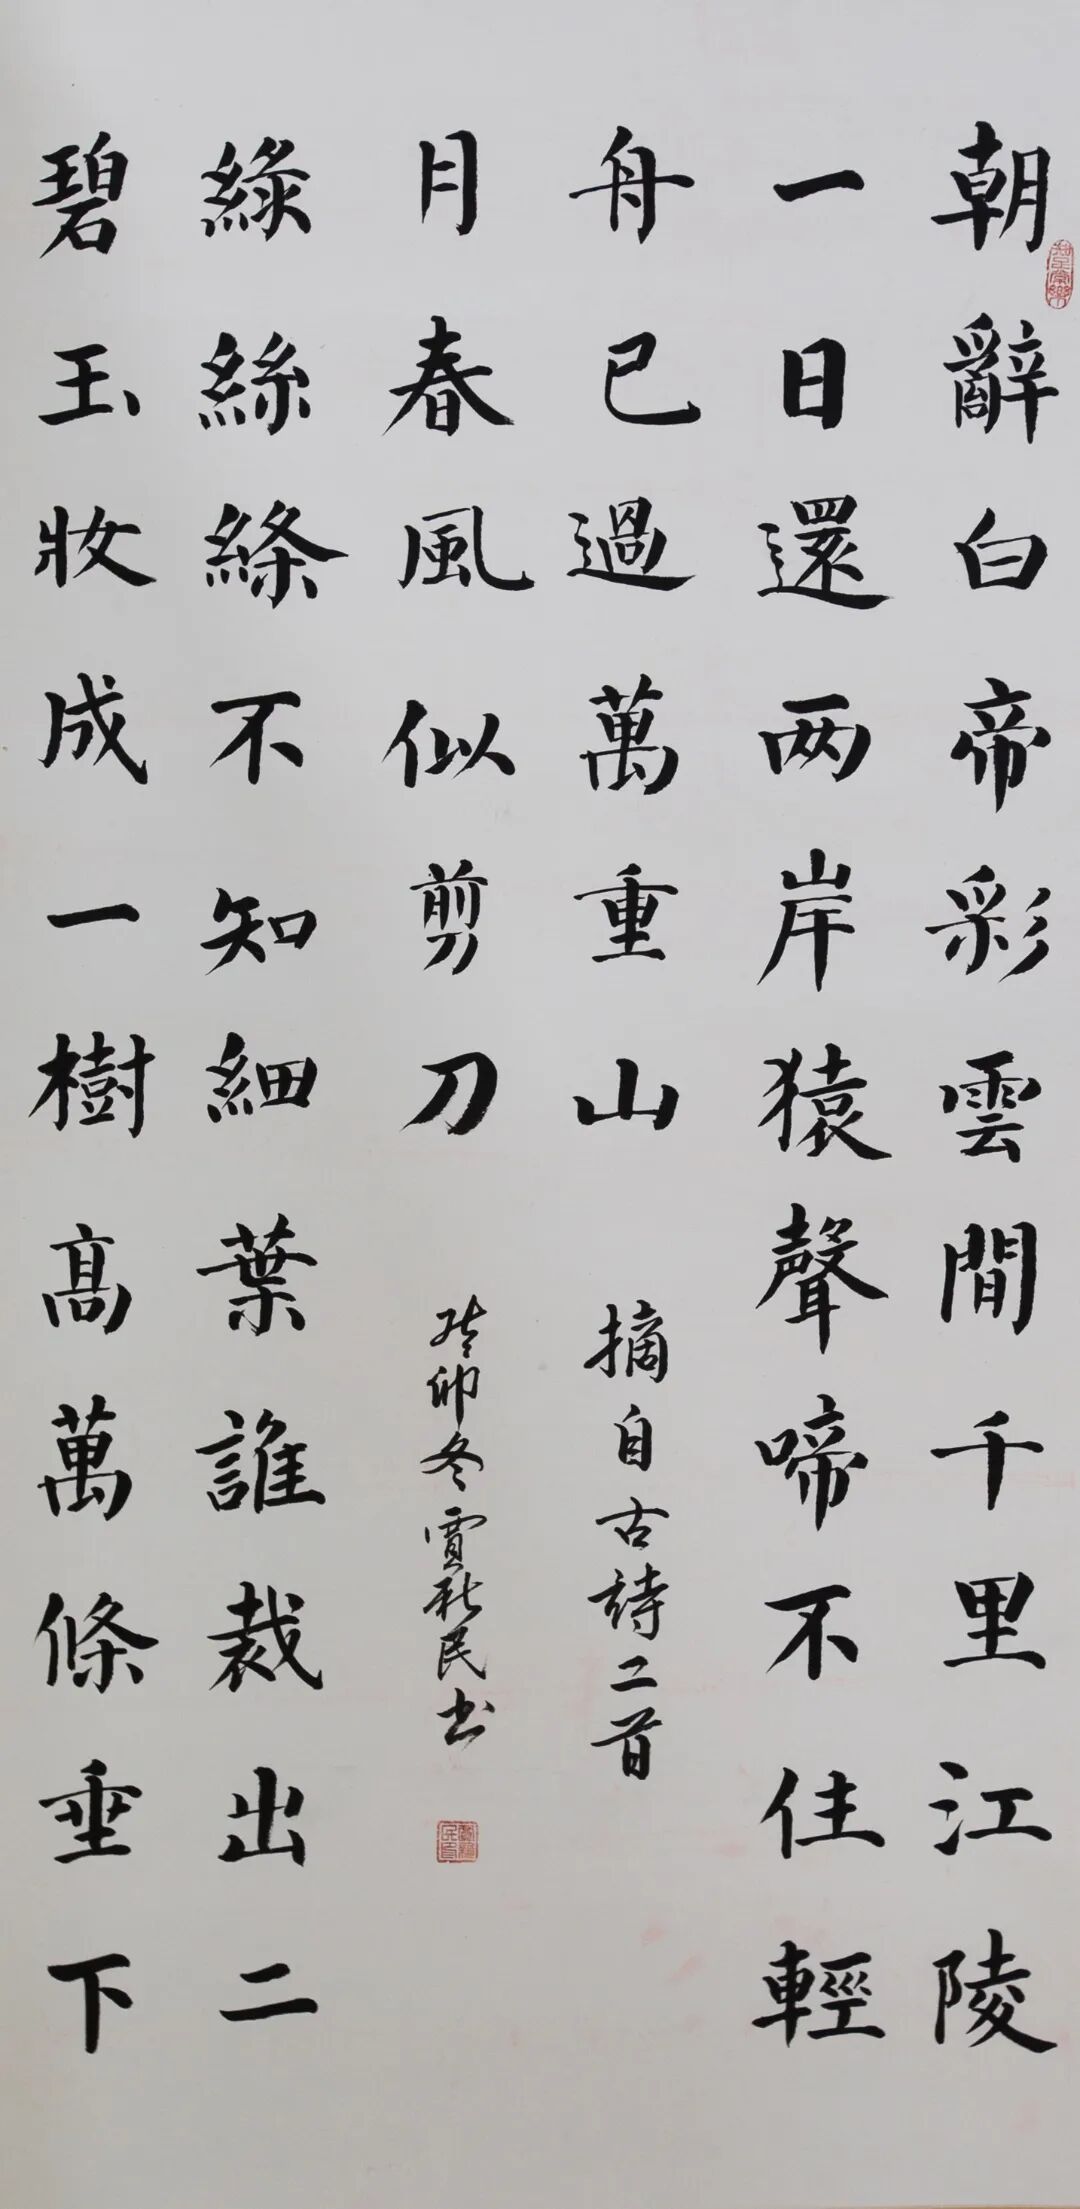 朝辭白帝彩雲間千里江陵
知足常樂
一日還两岸猿聲啼不住輕
舟已過萬重山
摘自古詩二首
碧玉妝成一樹高萬條垂下
綠絲絛不知細葉誰裁出二
月春風似剪刀
癸卯冬賈秋民书